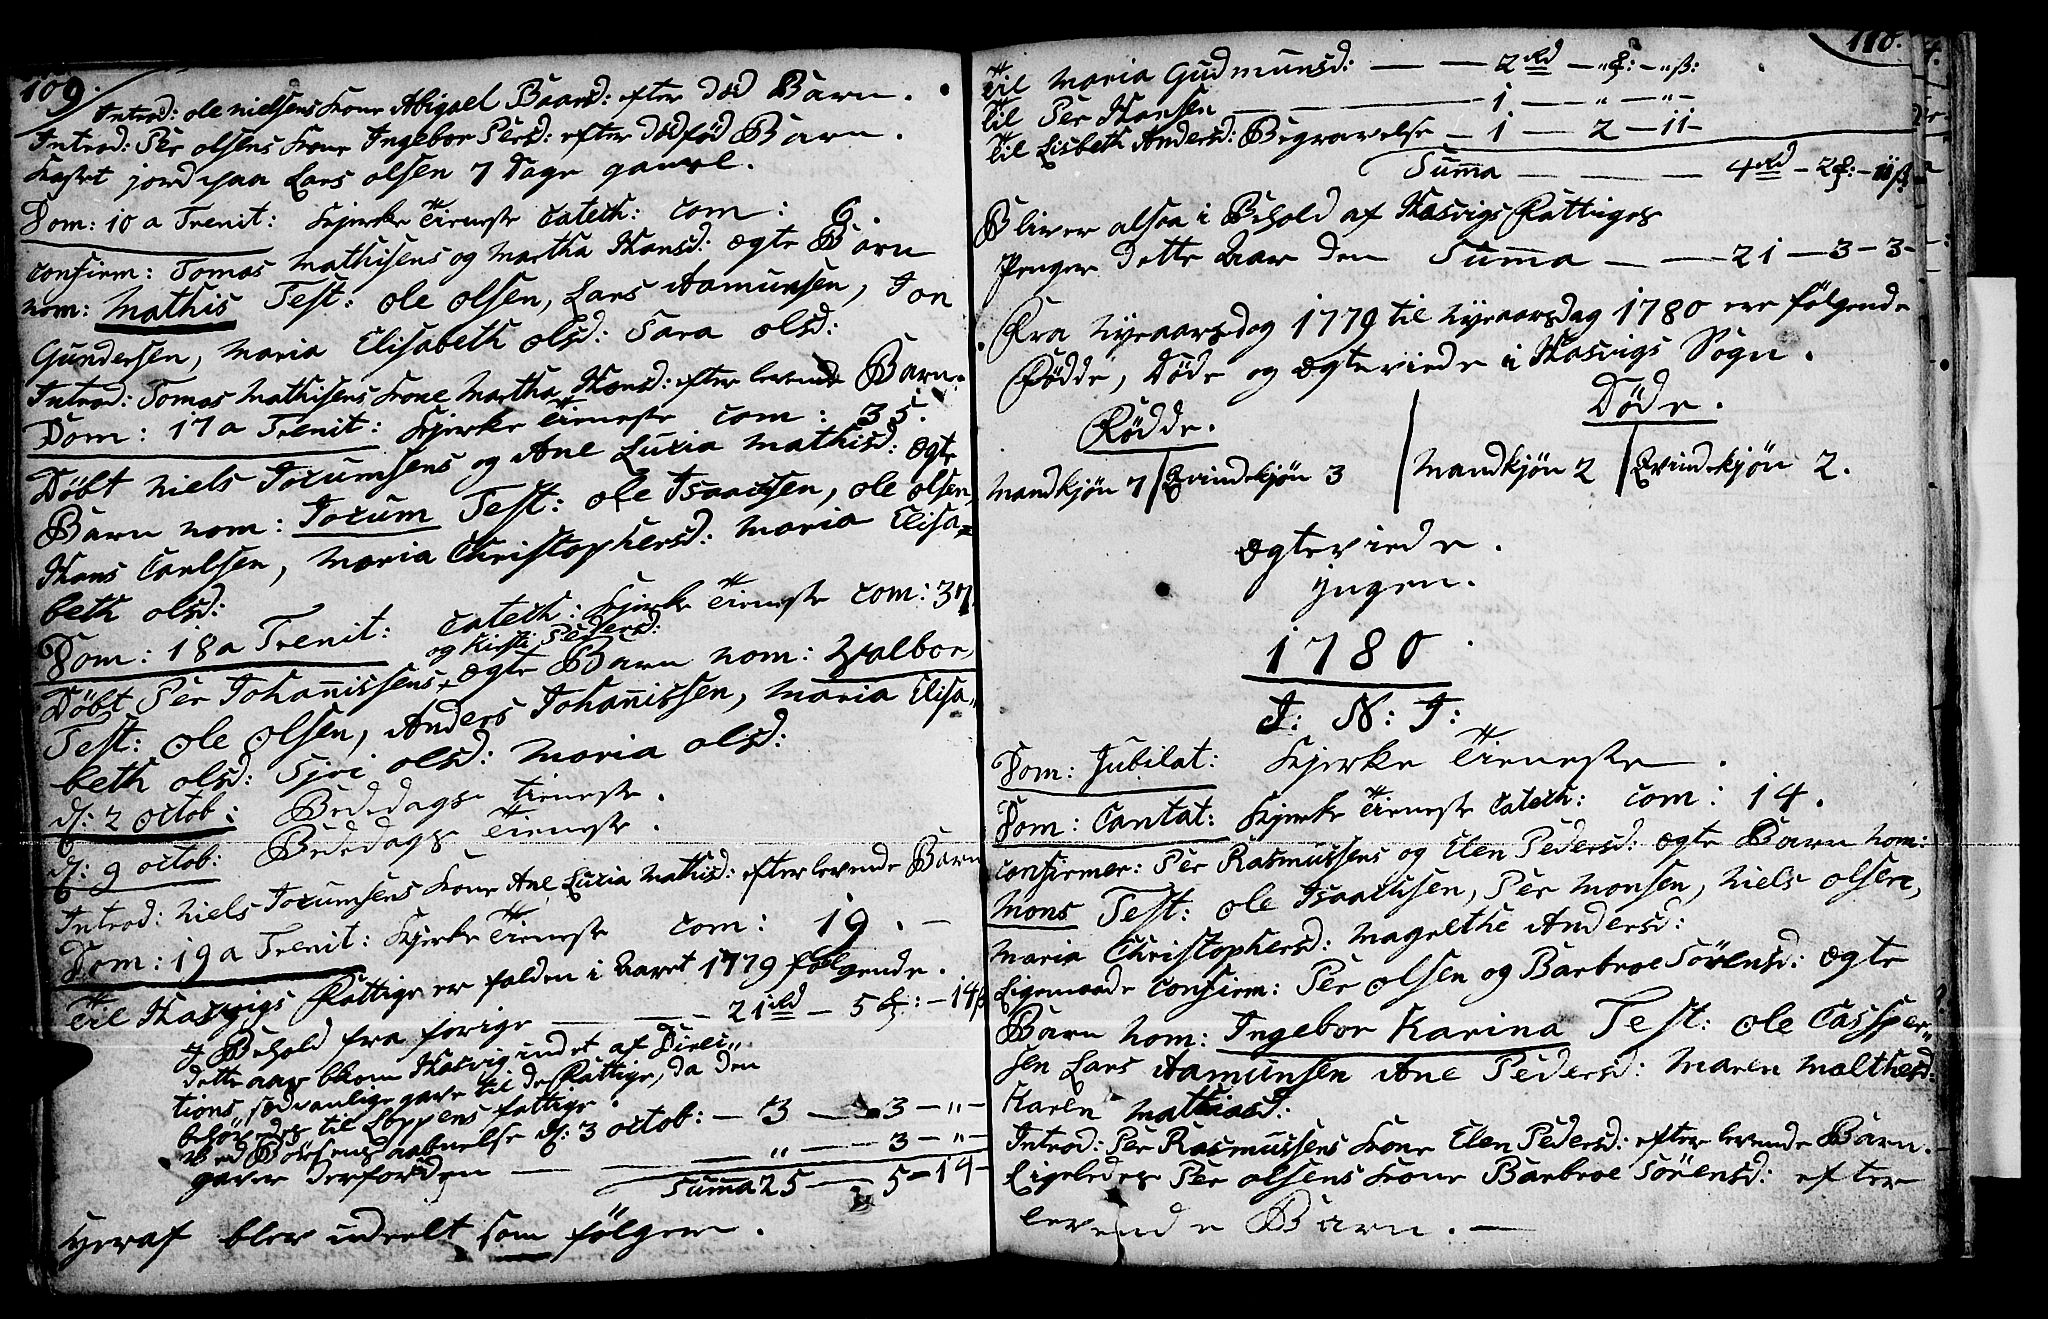 109.
Introd: ole nielsens kone Abigael Baarsd: efter død Barn.
Introd: Per olsens kone Ingebor Persd: efter dødfød Barn.
kastet jord paa Lars olsen 7 dage gammel.
Dom: 10 a Trenit: kjerke Tieneste catech: com: 6.
confirm: Tomas Mathisens og Martha Hansd: ægte Barn
nom: Mathis Test: ole olsen, Lars Aamunsen, Jon
Gundersen, Maria Elisabeth olsd: Sara olsd:
Introd: Tomas Mathisens kone Martha Hansd: efter levende Barn.
Dom: 17 a Trenit: kjerke Tieneste com: 35.
Døbt Niels Jocumsens og Ane Lucia Mathisd: ægte
Barn nom: Jocum Test: ole Isaachsen, ole olsen,
Hans Carlsen, Maria Christophersd: Maria Elisa-
beth olsd:
Dom: 18 a Trenit: catech: kjerke Tieneste com: 37.
og Kirsti Pedersd:
Døbt Per Johannissens ægte Barn nom: Valbor
Test: ole olsen, Anders Johannissen, Maria Elisa-
beth olsd: Sjri olsd: Maria olsd:
d: 2 octob: Bededags tieneste.
d: 9 octob: Bededags Tieneste.
Introd: Niels Jocumsens kone Ane Lucia Mathisd: efter levende Barn
Dom: 19 a Trenit: kjerke Tieneste com: 19.
Til Hasvigs Fattige er falden i Aaret 1779 følgende.
I Behold fra forige — 21 rd — 5 ₰: — 14 ß
dette aar bkom Hasvig indet af Direc-
tions sædvanlige gave til de Fattige, da den
behøvedes til Loppens fattige.
ved Bøssens aabnelse d: 3 octob: — 3 — 3 — „ —
gaver derforden — „ — 3 — „ —
Summa 25 — 5 — 14 —
Hyeraf blev udeelt som følger.
110.
Til Maria Gudmunsd: — — 2 rd — „ ₰: — „ ß:
Til Per Hansen — 1 — „ — „ —
Til Lisbeth Andersd: Begravelse — 1 — 2 — 11 —
Summa — — — 4 rd — 2 ₰: — 11 ß
Bliver altsaa i Behold af Hasvigs Fattiges
Penger dette Aar den Summa — — 21 — 3 — 3 —
Fra Nyeaarsdag 1779 til Nyeaarsdag 1780 ere følgende
Fødde, Døde og Ægteviede i Hasvigs Sogn.
Fødde. Døde.
Mandkjøn 7 Qvindekjøn 3 Mandkjøn 2 Qvindekjøn 2.
Ægteviede.
Jngen.
1780.
I: N: J:
Dom: Jubilat: kjerke Tieneste.
Dom: Cantat: kjerke Tieneste catech: com: 14.
confirmer: Per Rasmussens og Elen Pedersd: ægte Barn nom:
Mons Test: ole Isaachsen, Per Monsen, Niels olsen,
Maria Christophersd: Magrethe Andersd:
Ligemaade Confirm: Per olsen og Barbroe Sørensd: ægte
Barn nom: Ingebor Karina Test: ole Casper-
sen Lars Aamunsen Ane Pedersd: Maren Malthesd:
Karen Mathiasd:
Introd: Per Rasmussens kone Elen Pedersd: efter levende Barn.
Ligeledes Per olsens kone Barbroe Sørensd: efter
levende Barn. —